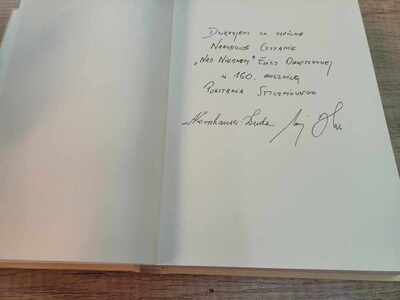 Dziękujemy za wspólne
Narodowe Czytanie
„Nad Niemnem" Elizy Orzeszkowej
w 160. rocznicę
Powstania Styczniowego
Kornhauser-Duda